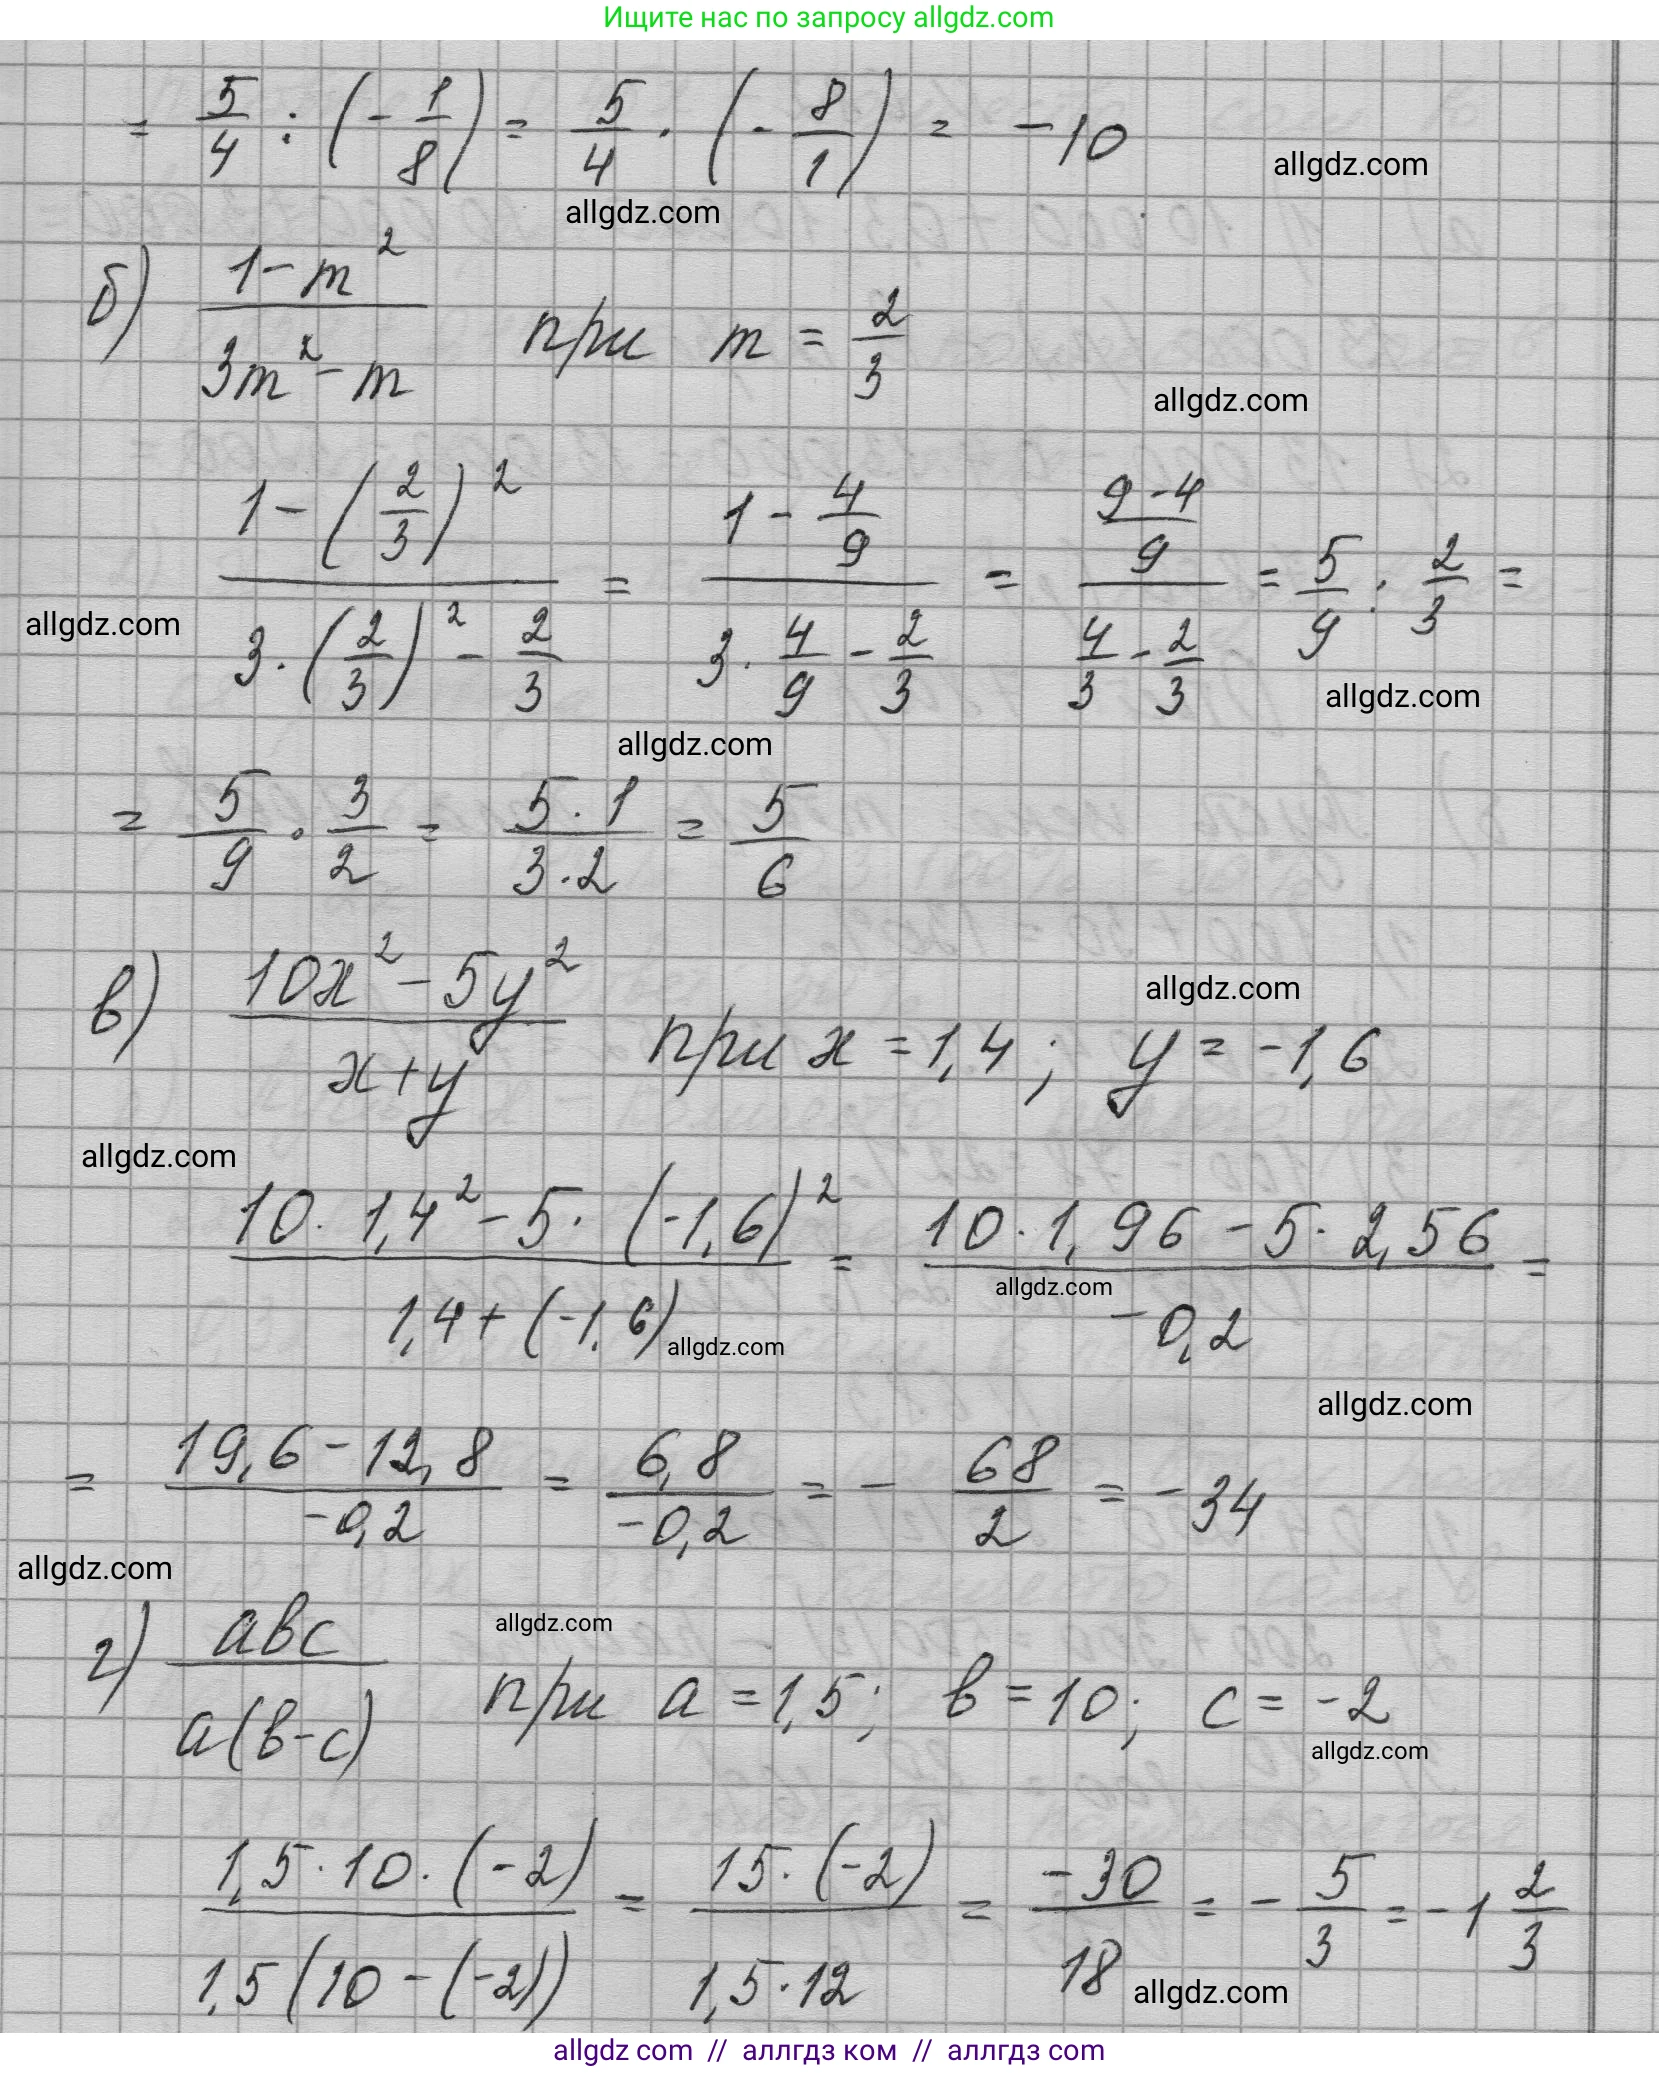 Ищите нас по запросу allgdz.com
= 5/4 : (-1/8) = 5/4 · (-8/1) = -10
allgdz.com
allgdz.com
б) (1-m²)/(3m²-m) при m = 2/3
allgdz.com
(1-(2/3)²)/(3·(2/3)²-2/3) = (1-4/9)/(3·4/9-2/3) = ((9-4)/9)/(4/3-2/3) = 5/9 : 2/3 =
allgdz.com
allgdz.com
allgdz.com
= 5/9 · 3/2 = (5·1)/(3·2) = 5/6
allgdz.com
в) (10x²-5y²)/(x+y) при x=1,4; y=-1,6
allgdz.com
(10·1,4²-5·(-1,6)²)/(1,4+(-1,6)) = (10·1,96-5·2,56)/(-0,2) =
allgdz.com
allgdz.com
allgdz.com
= (19,6-12,8)/(-0,2) = 6,8/(-0,2) = - 68/2 = -34
allgdz.com
allgdz.com
г) авс/(а(в-с)) при а=1,5; в=10; с=-2
allgdz.com
(1,5·10·(-2))/(1,5(10-(-2))) = (15·(-2))/(1,5·12) = -30/18 = -5/3 = -1 2/3
allgdz.com
allgdz com // аллгдз ком // аллгдз com